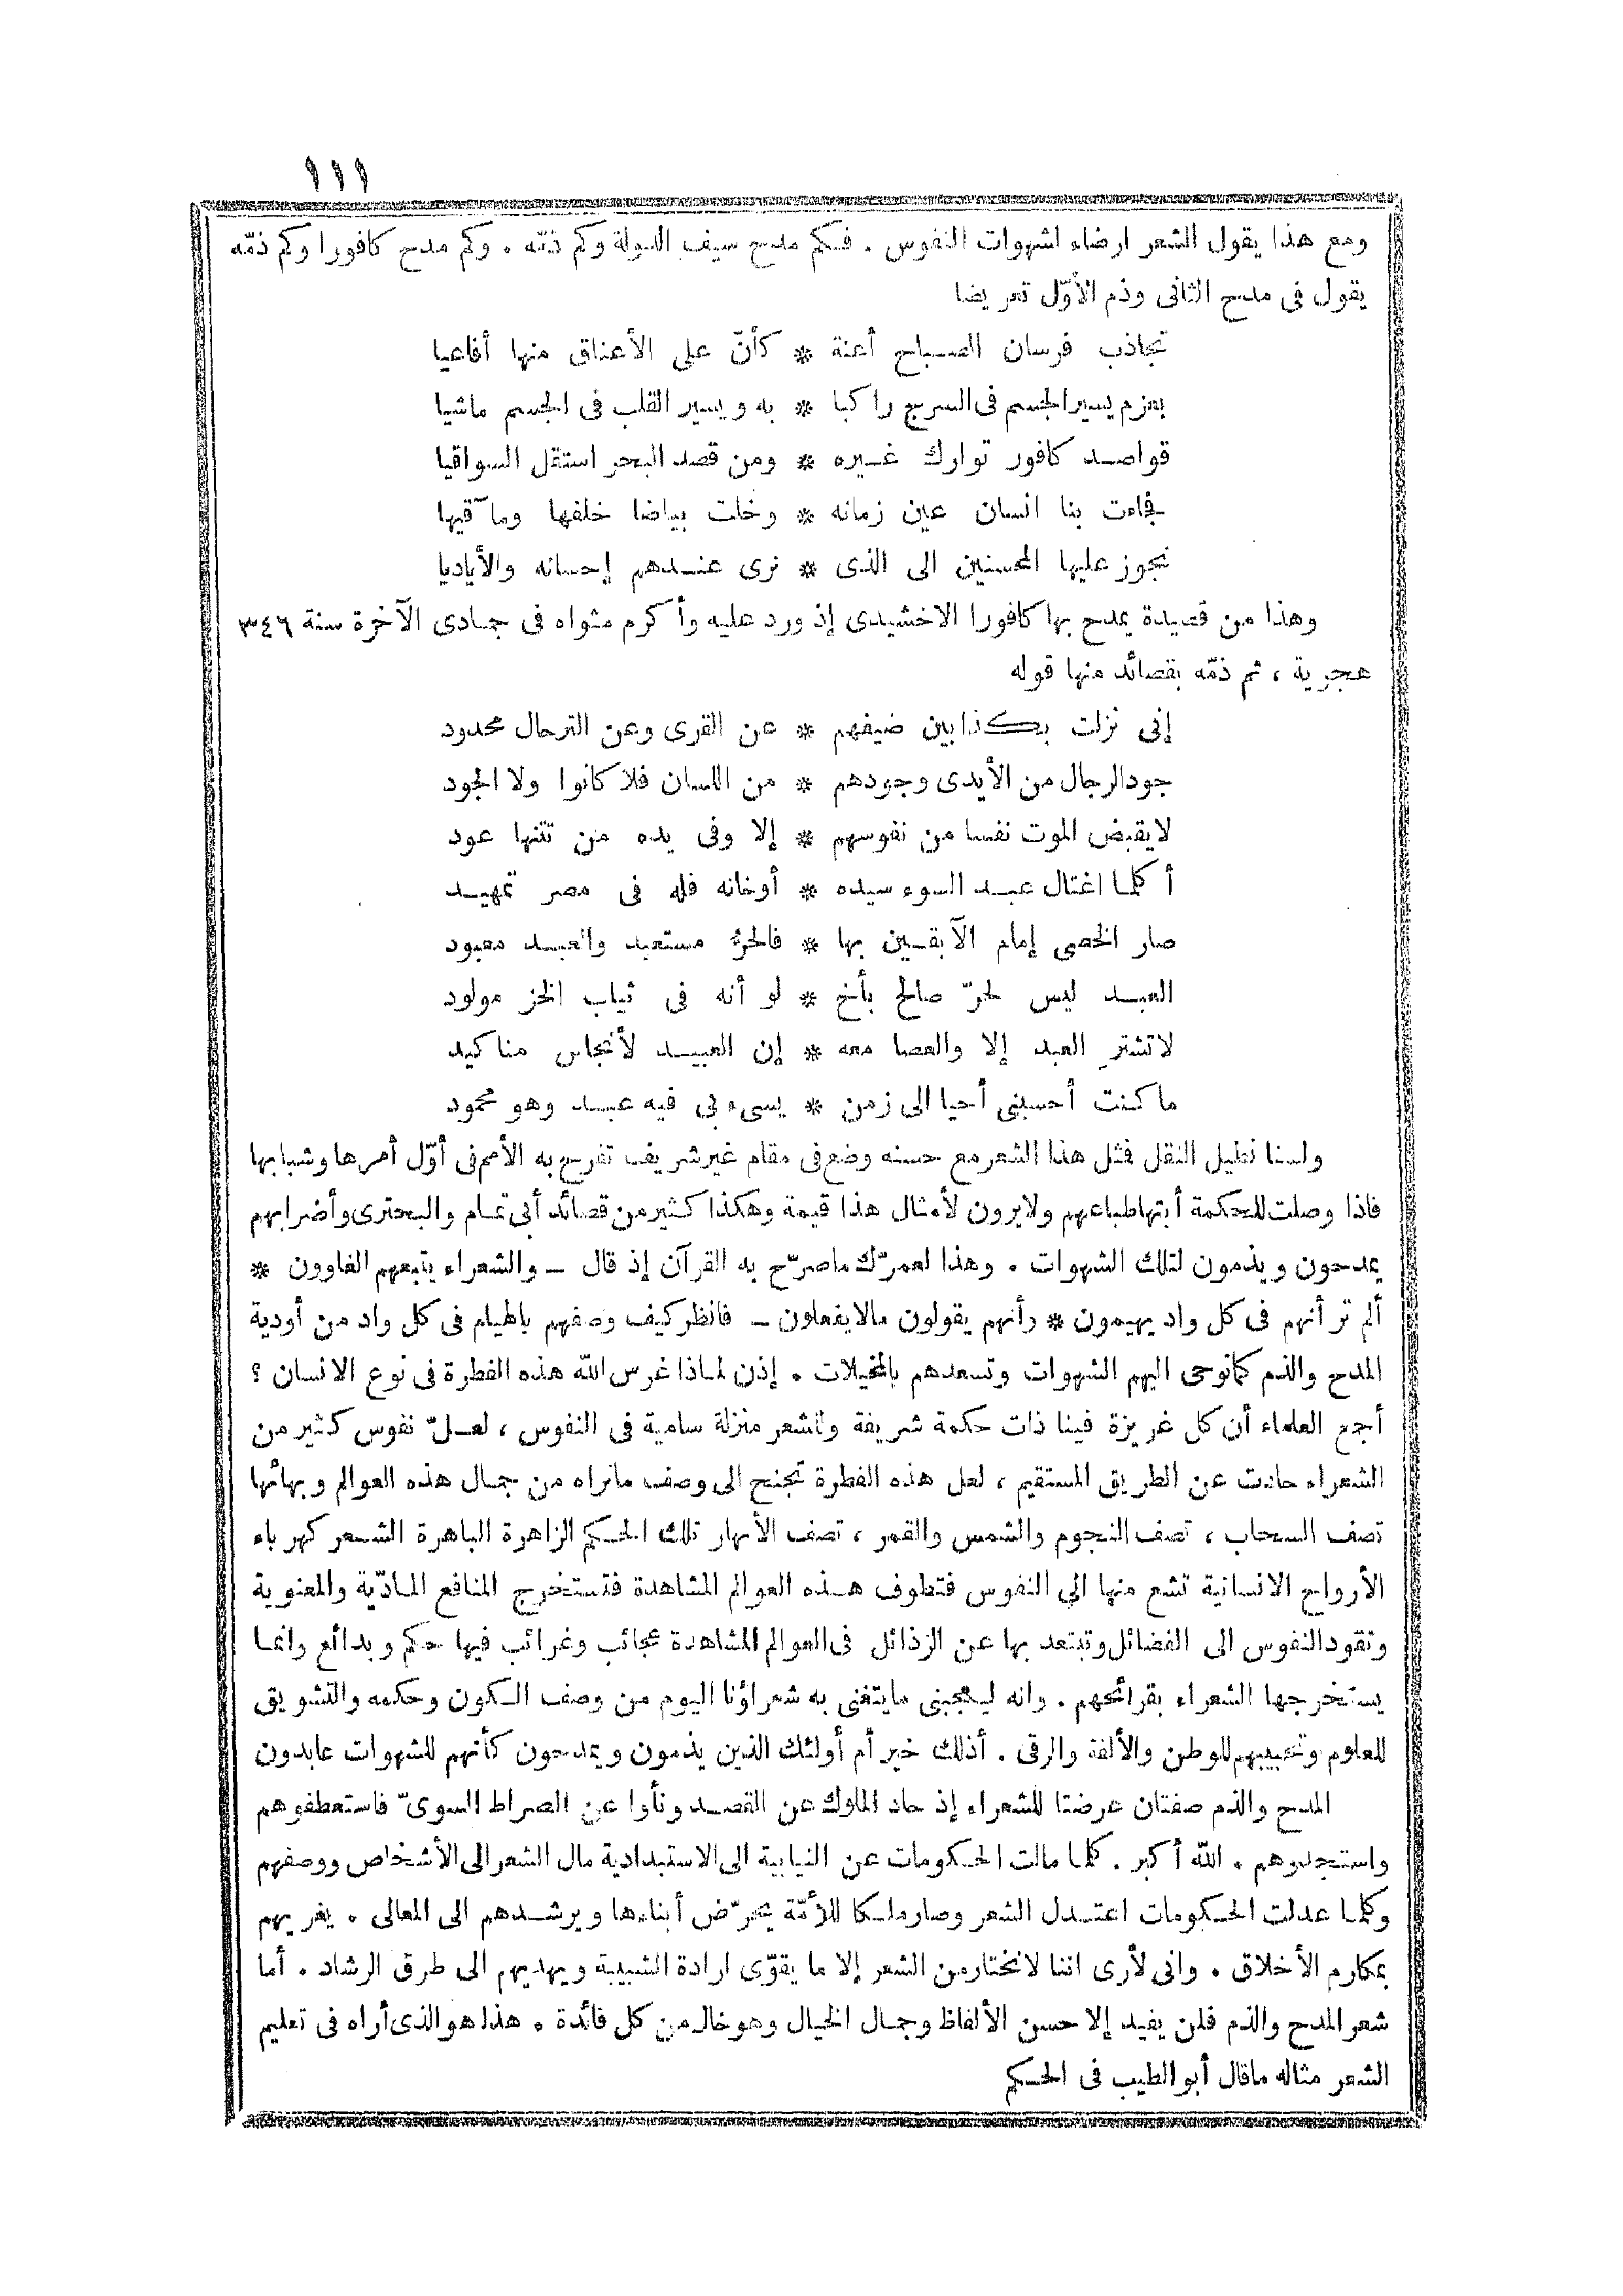 ١١١
ومع هذا يقول الشعر ارضاء لشهوات النفوس . فكم مدح سيف الدولة وكم ذمّه . وكم مدح كافورا وكم ذمّه
يقول فى مدح الثانى وذم الأوّل تعريضا
تجاذب فرسان الصباح أعنة * كأنّ على الأعناق منها أفاعيا
بعزم يسير الجسم فى السرج راكبا * به ويسير القلب فى الجسم ماشيا
قواصد كافور توارك غيره * ومن قصد البحر استقل السواقيا
فجاءت بنا انسان عين زمانه * وخلت بياضا خلفها ومآقيها
نجوز عليها المحسنين الى الذى * نرى عندهم إحسانه والأياديا
وهذا من قصيدة يمدح بها كافورا الاخشيدى إذ ورد عليه وأكرم مثواه فى جمادى الآخرة سنة ٣٤٦
هجرية ، ثم ذمّه بقصائد منها قوله
إنى نزلت بكذابين ضيفهم * عن القرى وعن الترحال محدود
جود الرجال من الأيدى وجودهم * من اللسان فلا كانوا ولا الجود
لا يقبض الموت نفسا من نفوسهم * إلا وفى يده من نتنها عود
أكلما اغتال عبد السوء سيده * أوخانه فله فى مصر تمهيد
صار الخصى إمام الآبقين بها * فالحرّ مستعبد والعبد معبود
العبد ليس لحرّ صالح بأخ * لو أنه فى ثياب الخز مولود
لا تشترِ العبد إلا والعصا معه * إن العبيد لأنجاس مناكيد
ما كنت أحسبنى أحيا الى زمن * يسىء بى فيه عبد وهو محمود
ولسنا نطيل النقل فمثل هذا الشعر مع حسنه وضع فى مقام غير شريف تفرح به الأمم فى أوّل أمرها وشبابها
فاذا وصلت للحكمة أبتها طباعهم ولا يرون لأمثال هذا قيمة وهكذا كثير من قصائد أبى تمام والبحترى وأضرابهم
يمدحون ويذمون لتلك الشهوات . وهذا لعمرّك ماصرّح به القرآن إذ قال – والشعراء يتبعهم الغاوون *
ألم تر أنهم فى كل واد يهيمون * وأنهم يقولون مالا يفعلون – فانظر كيف وصفهم بالهيام فى كل واد من أودية
المدح والذم كما نوحى اليهم الشهوات وتسعدهم بالمخيلات . إذن لماذا غرس الله هذه الفطرة فى نوع الانسان ؟
أجمع العلماء أن كل غريزة فينا ذات حكمة شريفة وللشعر منزلة سامية فى النفوس ، لعلّ نفوس كثير من
الشعراء حادت عن الطريق المستقيم ، لعل هذه الفطرة تجنح الى وصف مانراه من جمال هذه العوالم وبهائها
تصف السحاب ، تصف النجوم والشمس والقمر ، تصف الأنهار تلك الحكم الزاهرة الباهرة الشعر كهرباء
الأرواح الانسانية تشع منها الى النفوس فتطوف هذه العوالم المشاهدة فتستخرج المنافع المادّية والمعنوية
وتقود النفوس الى الفضائل وتبتعد بها عن الرذائل فى العوالم المشاهدة عجائب وغرائب فيها حكم وبدائع وانما
يستخرجها الشعراء بقرائحهم . وانه ليعجبنى مايتغنى به شعراؤنا اليوم من وصف الكون وحكمه والتشويق
للعلوم وتحبيبهم للوطن والألفة والرقى . أذلك خير أم أولئك الذين يذمون ويمدحون كأنهم للشهوات عابدون
المدح والذم صفتان عرضتا للشعراء إذ حاد الملوك عن القصد ونأوا عن الصراط السوىّ فاستعطفوهم
واستجدوهم . الله أكبر . كلما مالت الحكومات عن النيابية الى الاستبدادية مال الشعر الى الأشخاص ووصفهم
وكلما عدلت الحكومات اعتدل الشعر وصار ملكا للأمّة يحرّض أبناءها ويرشدهم الى المعالى . يغريهم
بمكارم الأخلاق . وانى لأرى اننا لا نختار من الشعر إلا ما يقوّى ارادة الشبيبة ويهديهم الى طرق الرشاد . أما
شعر المدح والذم فلن يفيد إلا حسن الألفاظ وجمال الخيال وهو خال من كل فائدة . هذا هو الذى أراه فى تعليم
الشعر مثاله ماقال أبو الطيب فى الحكم